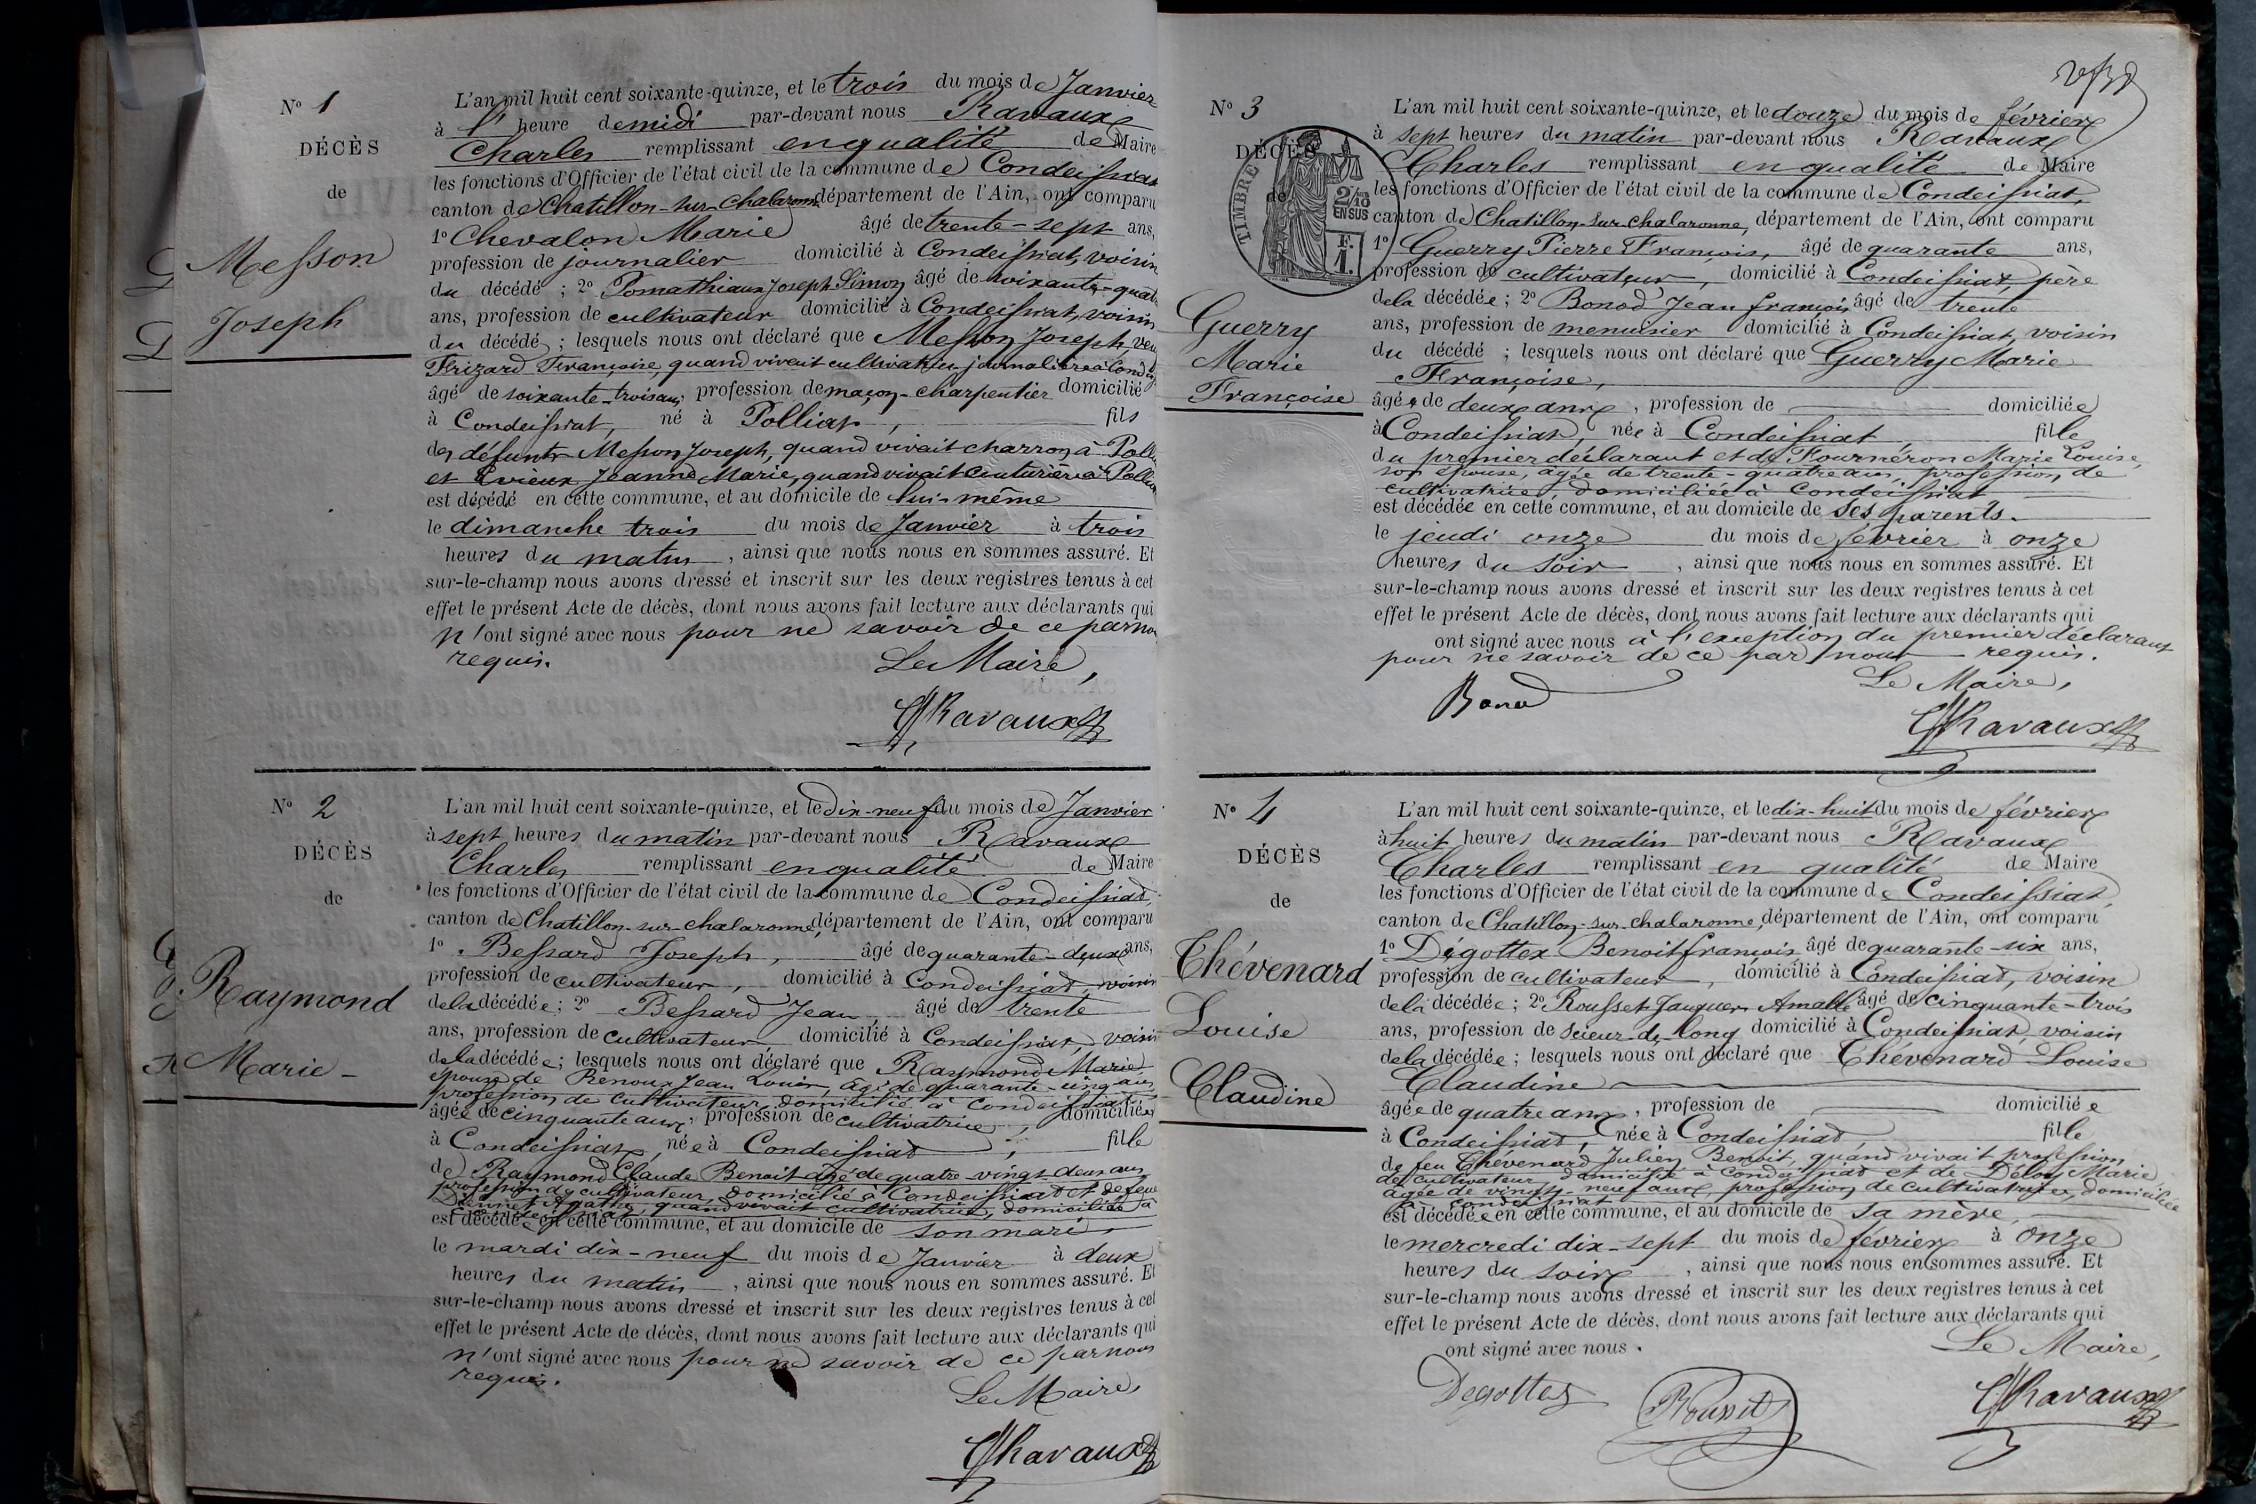 N° 1
DÉCÈS
de
Messon
Joseph
L'an mil huit cent soixante-quinze, et le trois du mois de Janvier
à l' heure de midi par-devant nous Ravaux
Charles remplissant en qualité de Maire
les fonctions d'Officier de l'état civil de la commune de Condeissiat
canton de Chatillon-sur-Chalaronne département de l'Ain, ont comparu
1° Chevalon Marie âgé de trente-sept ans,
profession de journalier domicilié à Condeissiat, voisin
du décédé ; 2° Pomathiaux Joseph Simon âgé de soixante-quatre
ans, profession de cultivateur domicilié à Condeissiat, voisin
du décédé ; lesquels nous ont déclaré que Messon Joseph, veuf
Frizard Françoise, quand vivait journalière à
âgé de soixante-trois ans, profession de maçon-charpentier domicilié
à Condeissiat, né à Polliat, fils
des défunts Messon Joseph, quand vivait charron à
et Jeanne Marie, quand vivait couturière à
est décédé en cette commune, et au domicile de lui-même
le dimanche trois du mois de Janvier à trois
heures du matin , ainsi que nous nous en sommes assuré. Et
sur-le-champ nous avons dressé et inscrit sur les deux registres tenus à cet
effet le présent Acte de décès, dont nous avons fait lecture aux déclarants qui
n'ont signé avec nous pour ne savoir de ce par nous
requis. Le Maire,
Ravaux
N° 2
DÉCÈS
de
Raymond
Marie -
L'an mil huit cent soixante-quinze, et le dix-neuf du mois de Janvier
à sept heures du matin par-devant nous Ravaux
Charles remplissant en qualité de Maire
les fonctions d'Officier de l'état civil de la commune de Condeissiat,
canton de Chatillon-sur-chalaronne, département de l'Ain, ont comparu
1° Bessard Joseph, âgé de quarante-deux ans,
profession de cultivateur, domicilié à Condeissiat, voisin
de la décédée ; 2° Bessard Jean, âgé de trente
ans, profession de cultivateur domicilié à Condeissiat, voisin
de la décédée ; lesquels nous ont déclaré que Raymond Marie,
épouse de Renoux Jean Louis, âgé de quarante-cinq ans,
profession de cultivateur, domicilié à Condeissiat
âgée de cinquante ans, profession de cultivatrice, domiciliée
à Condeissiat, née à Condeissiat, fille
de Raymond Claude Benoit âgé de quatre-vingt-deux ans
profession de cultivateur, domicilié à Condeissiat et de feue
quand vivait cultivatrice, domiciliée à
Condeissiat
est décédée en cette commune, et au domicile de son mari
le mardi dix-neuf du mois de Janvier à deux
heures du matin , ainsi que nous nous en sommes assuré. Et
sur-le-champ nous avons dressé et inscrit sur les deux registres tenus à cet
effet le présent Acte de décès, dont nous avons fait lecture aux déclarants qui
n'ont signé avec nous pour ne savoir de ce par nous
requis.
Le Maire,
Ravaux
N° 3
DÉCÈS
de
TIMBRE
2/10
EN SUS
F.
1.
Guerry
Marie
Françoise
L'an mil huit cent soixante-quinze, et le douze du mois de février
à sept heures du matin par-devant nous Ravaux
Charles remplissant en qualité de Maire
les fonctions d'Officier de l'état civil de la commune de Condeissiat,
canton de Chatillon-sur-chalaronne, département de l'Ain, ont comparu
1° Guerry Pierre François, âgé de quarante ans,
profession de cultivateur, domicilié à Condeissiat, père
de la décédée ; 2° Bonod Jean françois âgé de trente
ans, profession de menuisier domicilié à Condeissiat, voisin
du décédé ; lesquels nous ont déclaré que Guerry Marie
Françoise,
âgée de deux ans , profession de domiciliée
à Condeissiat, née à Condeissiat fille
du premier déclarant et de Fournéron Marie Louise,
son épouse, âgée de trente-quatre ans, profession de
cultivatrice, domiciliée à Condeissiat
est décédée en cette commune, et au domicile de ses parents.
le jeudi onze du mois de février à onze
heures du soir , ainsi que nous nous en sommes assuré. Et
sur-le-champ nous avons dressé et inscrit sur les deux registres tenus à cet
effet le présent Acte de décès, dont nous avons fait lecture aux déclarants qui
ont signé avec nous à l'exception du premier déclarant
pour ne savoir de ce par nous requis.
Le Maire,
Bonod
Ravaux
N° 4
DÉCÈS
de
Thévenard
Louise
Claudine
L'an mil huit cent soixante-quinze, et le dix-huit du mois de février
à huit heures du matin par-devant nous Ravaux
Charles remplissant en qualité de Maire
les fonctions d'Officier de l'état civil de la commune de Condeissiat,
canton de Chatillon-sur-chalaronne, département de l'Ain, ont comparu
1° Dégottex Benoit françois âgé de quarante-six ans,
profession de cultivateur, domicilié à Condeissiat, voisin
de la décédée ; 2° Rousset âgé de cinquante-trois
ans, profession de scieur de long domicilié à Condeissiat, voisin
de la décédée ; lesquels nous ont déclaré que Thévenard Louise
Claudine
âgée de quatre ans , profession de domiciliée
à Condeissiat, née à Condeissiat fille
de feu Thévenard Julien Benoit, quand vivait profession
de cultivateur domicilié à Condeissiat et de Marie
âgée de vingt-neuf ans, profession de cultivatrice, domiciliée
à Condeissiat
est décédée en cette commune, et au domicile de sa mère,
le mercredi dix-sept du mois de février à onze
heures du soir , ainsi que nous nous en sommes assuré. Et
sur-le-champ nous avons dressé et inscrit sur les deux registres tenus à cet
effet le présent Acte de décès, dont nous avons fait lecture aux déclarants qui
ont signé avec nous. Le Maire,
Degottex Rousset Ravaux